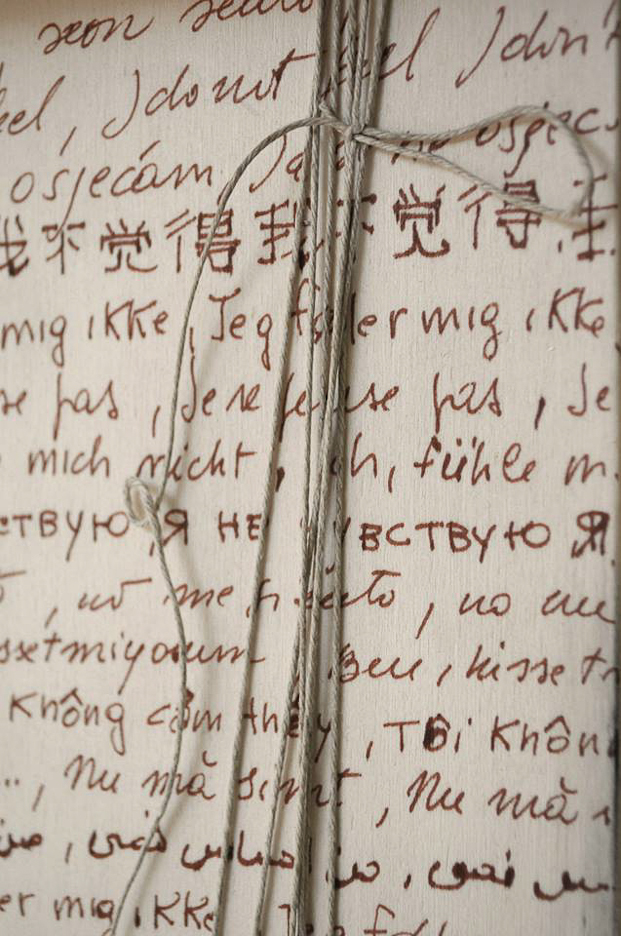 non sento
feel, I do not feel I don't
osjećam, Ja ne osjeć
我不觉得我不觉得,我
mig ikke, Jeg føler mig ikke
se pas, Je ne pense pas, Je
mich nicht, ich, fühle m
ствую, Я не чувствую Я
, no me siento, no me
ssetmiyorum, Ben, hisset
không cảm thấy, Tôi khôn
.., Nu mă simt, Nu mă
من احساس
er mig ikke